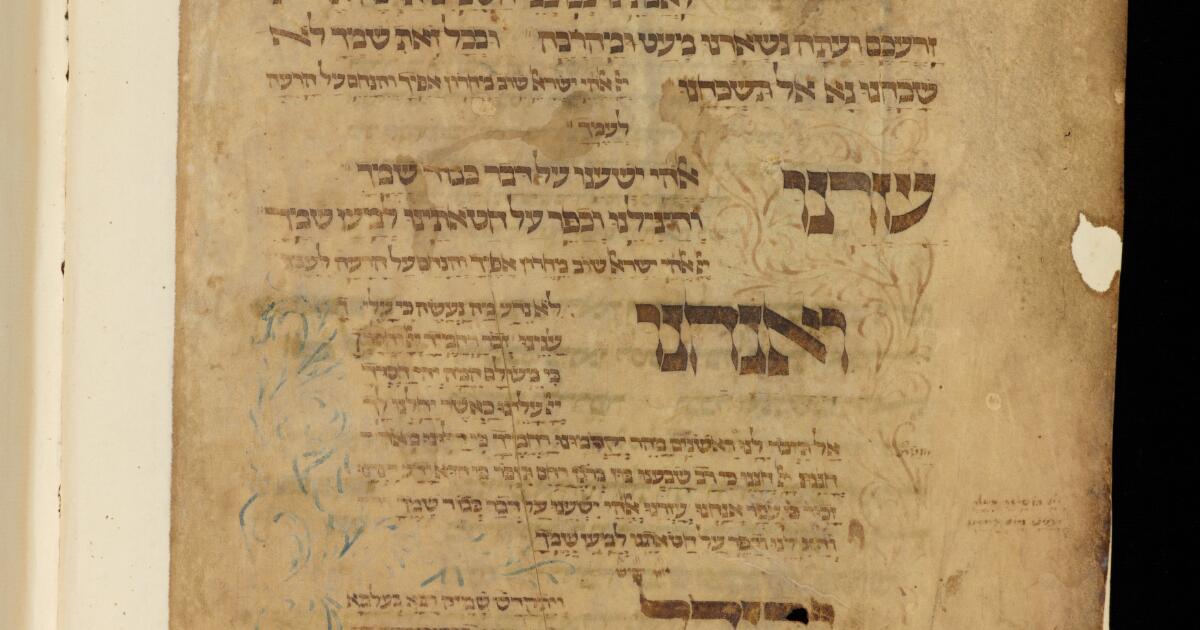 זרעכם ועתה נשארנו מעט ומהרבה ובכל זאת שמך לא
שכחנו נא אל תשכחנו יי אלהי ישראל שוב מחרון אפיך והנחם על הרעה
לעמך
עזרנו אלהי ישענו על דבר כבוד שמך
והצילנו וכפר על חטאתינו למען שמך
יי אלהי ישראל שוב מחרון אפיך והנחם על הרעה לעמך
ואנחנו לא נדע מה נעשה כי עליך
עינינו זכר רחמיך יי וחסדיך
כי מעולם המה יהי חסדך
יי עלינו כאשר יחלנו לך
אל תזכר לנו ראשונים מהר יקדמונו רחמיך כי דלונו מאד
חננו יי חננו כי רב שבענו בוז ברגז רחם תזכר כי הוא ידע יצרנו
זכור כי עפר אנחנו עזרנו אלהי ישענו על דבר כבוד שמך
והצילנו וכפר על חטאתנו למען שמך
ויתקדש שמיה רבא בעלמא